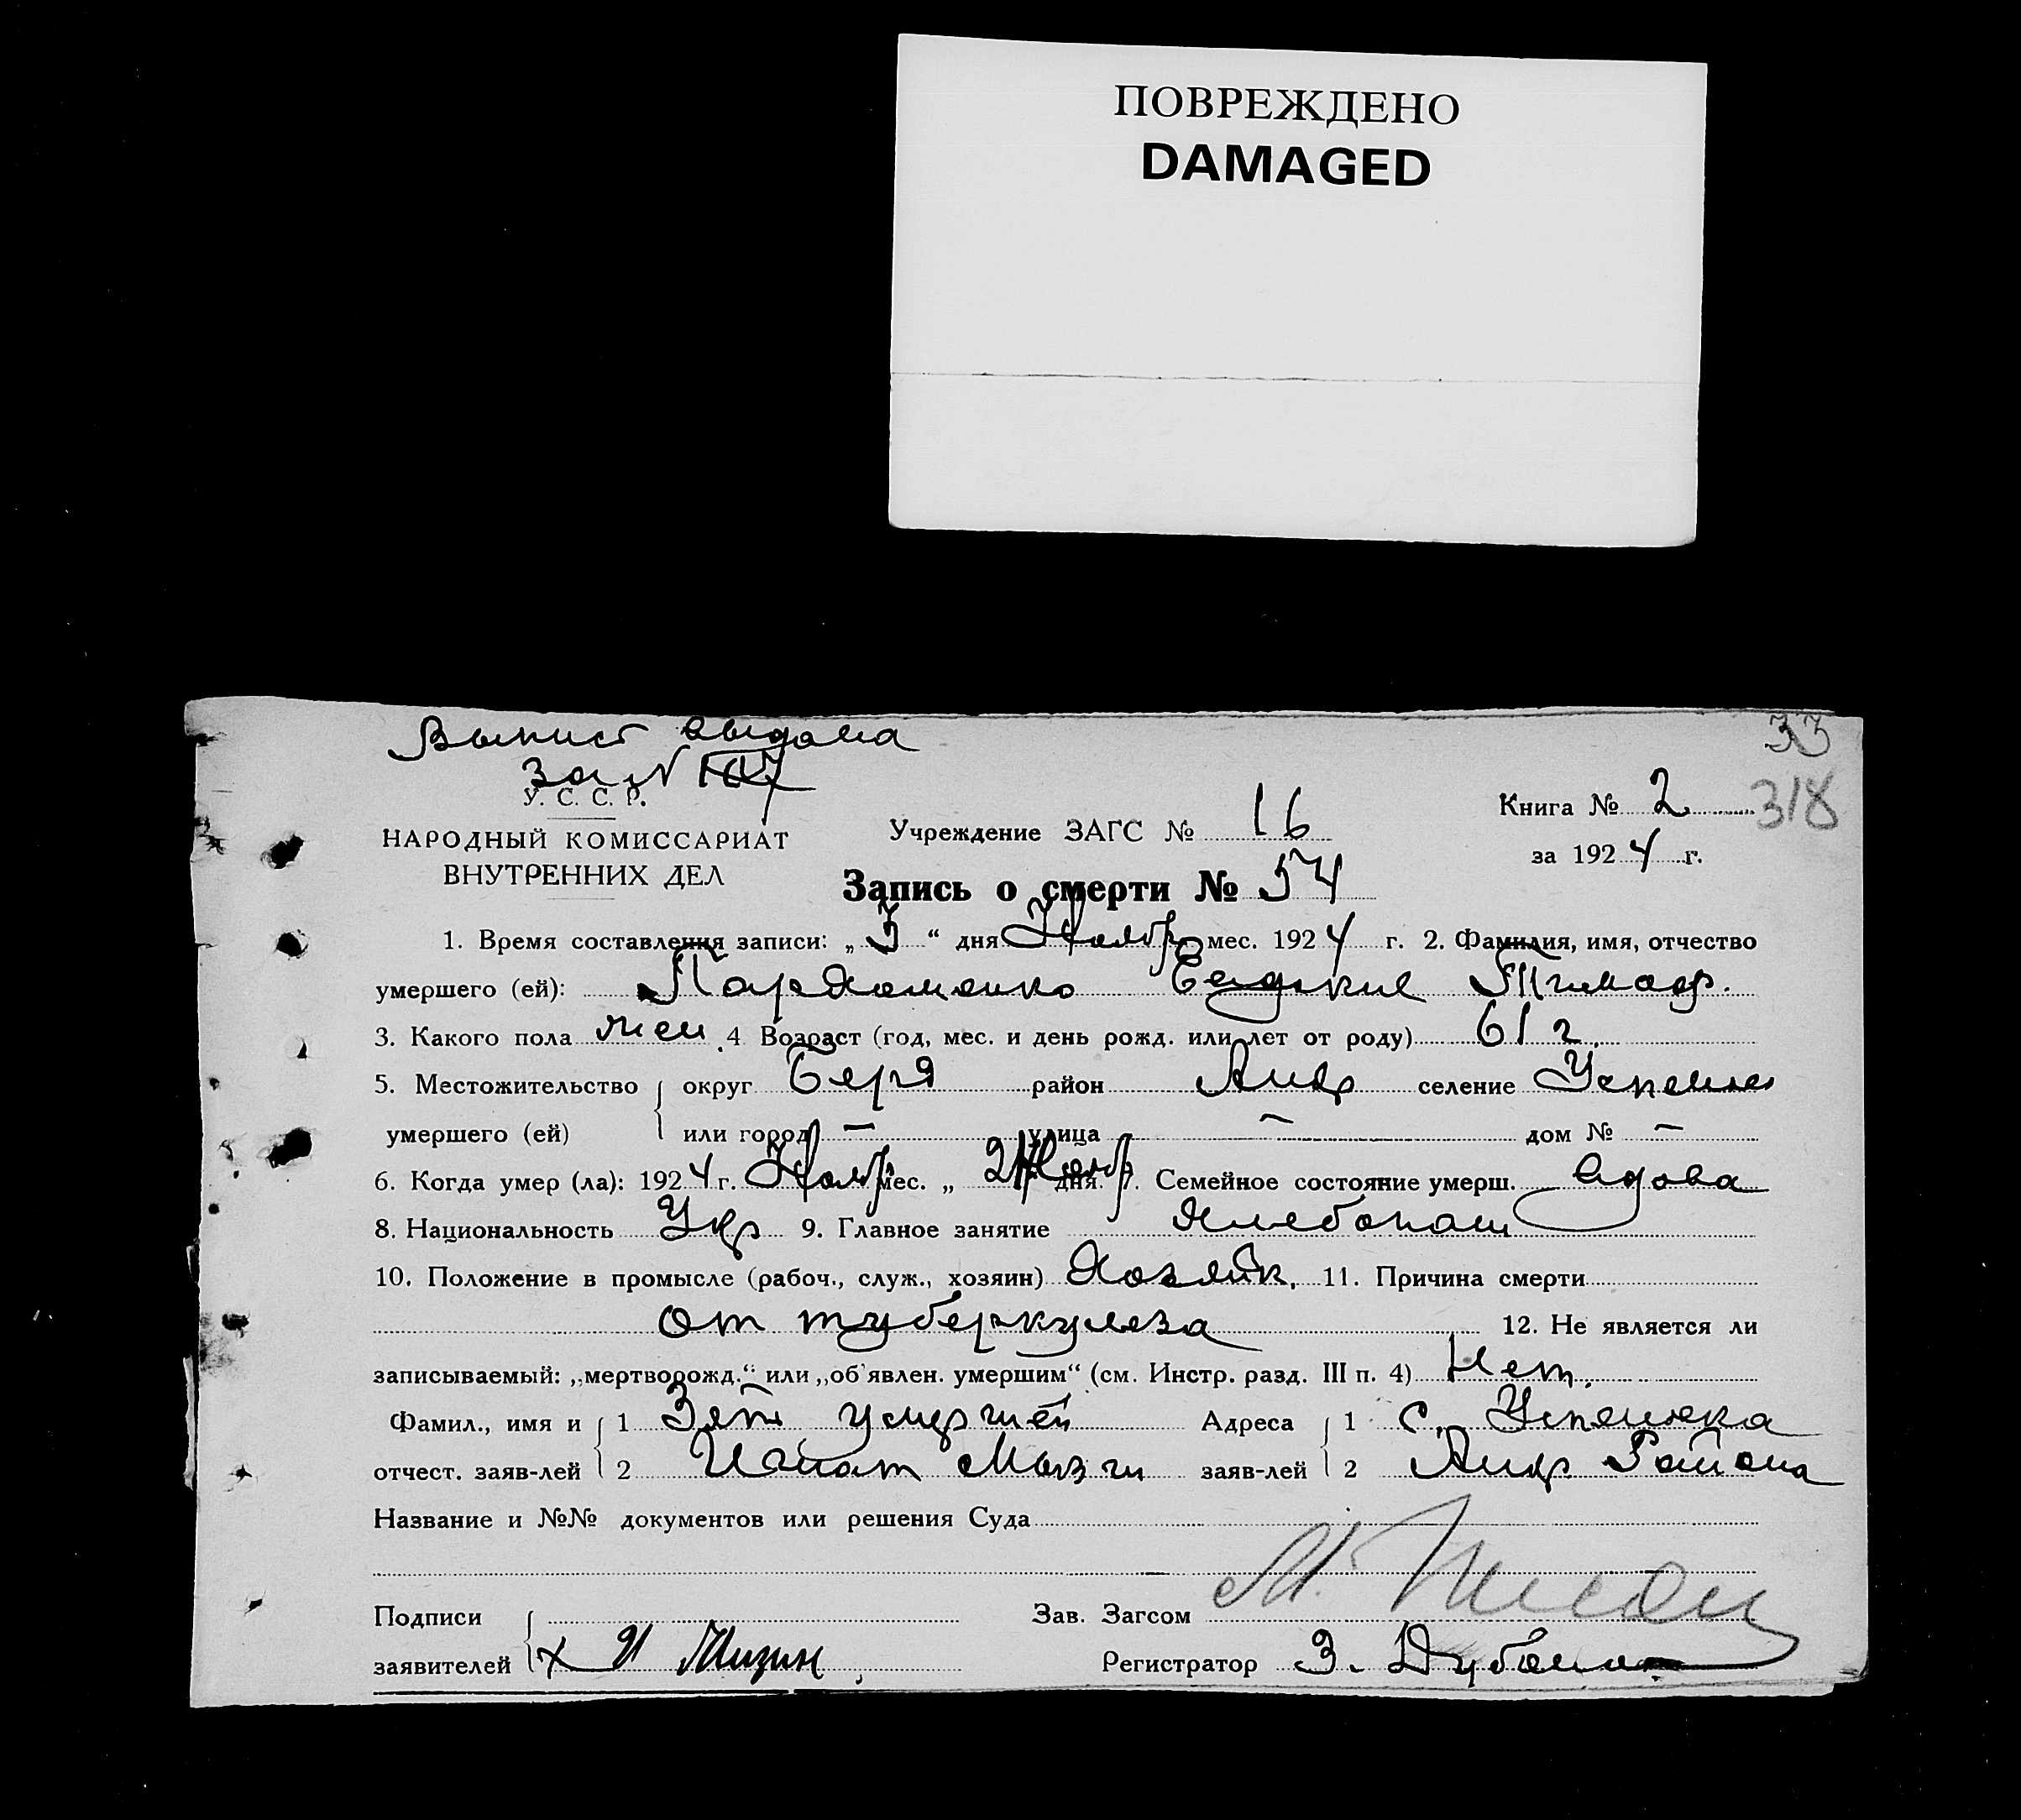 ПОВРЕЖДЕНО
DAMAGED
Выпись выдана
за №
33
318
У. С. С. Р.
НАРОДНЫЙ КОМИССАРИАТ
ВНУТРЕННИХ ДЕЛ
Учреждение ЗАГС № 16
Книга № 2
за 1924 г.
Запись о смерти № 54
1. Время составления записи: „ 3 “ дня Ноябр мес. 1924 г. 2. Фамилия, имя, отчество
умершего (ей): Пархоменко Тимоф.
3. Какого пола жен 4 Возраст (год, мес. и день рожд. или лет от роду) 61 г.
5. Местожительство округ Берд район Андр селение
умершего (ей) или город — улица — дом № —
6. Когда умер (ла): 1924 г. Ноябр мес. „ 2 дня. 7. Семейное состояние умерш. вдова
8. Национальность Укр 9. Главное занятие Хлебопаш
10. Положение в промысле (рабоч., служ., хозяин) Хозяйк. 11. Причина смерти
от туберкулеза 12. Не является ли
записываемый: „мертворожд.“ или „об'явлен. умершим“ (см. Инстр. разд. III п. 4) Нет.
Фамил., имя и 1 Зять умершей Адреса 1 с. Успеновка
отчест. заяв-лей 2 Игнат заяв-лей 2 Андр Района
Название и №№ документов или решения Суда
Подписи Зав. Загсом
заявителей х И Мизин Регистратор З.